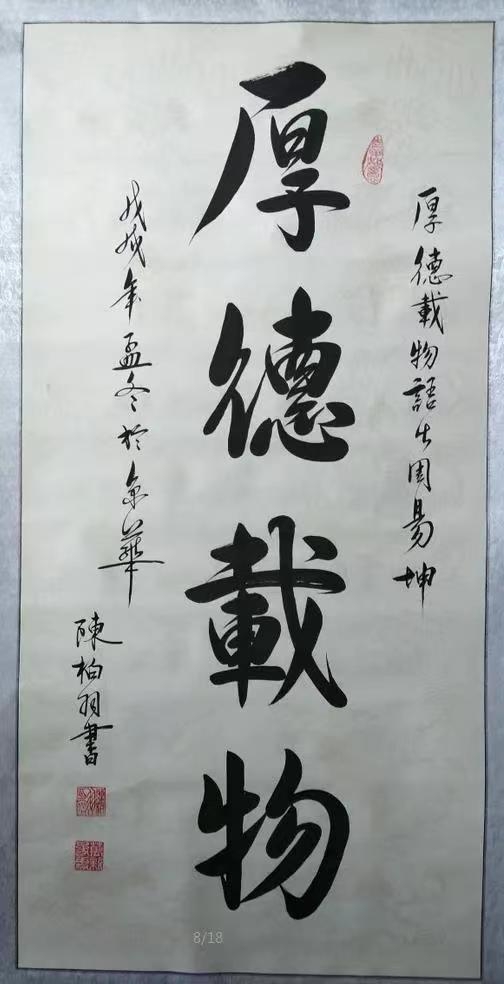 厚德載物語出周易坤
厚德載物
戊戌年孟冬於京華
陳柏羽書
8/18